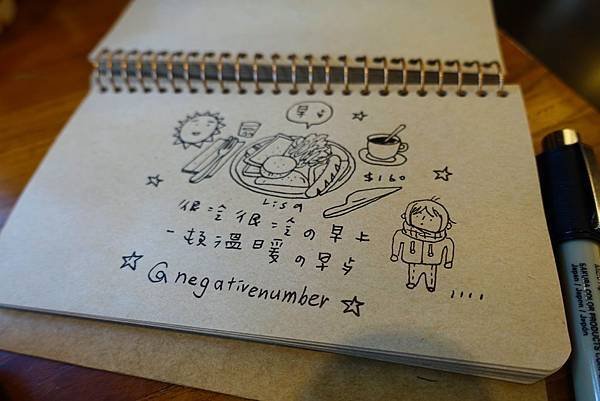 早安
$160
Lisa
很冷很冷の早上
一頓溫暖の早歺
@negativenumber
SAKURA COLOR PRODUCTS CO
Japan / Japon / Japón